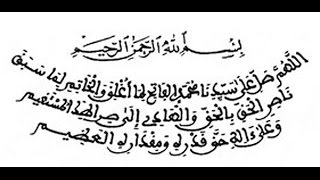 بِسْمِ اللهِ الرَّحْمٰنِ الرَّحِيمِ
اللَّهُمَّ صَلِّ عَلَى سَيِّدِنَا مُحَمَّدٍ الفَاتِحِ لِمَا أُغْلِقَ وَالْخَاتِمِ لِمَا سَبَقَ
نَاصِرِ الْحَقِّ بِالْحَقِّ وَالْهَادِي إِلَى صِرَاطِكَ الْمُسْتَقِيمِ
وَعَلَى آلِهِ حَقَّ قَدْرِهِ وَمِقْدَارِهِ الْعَظِيمِ